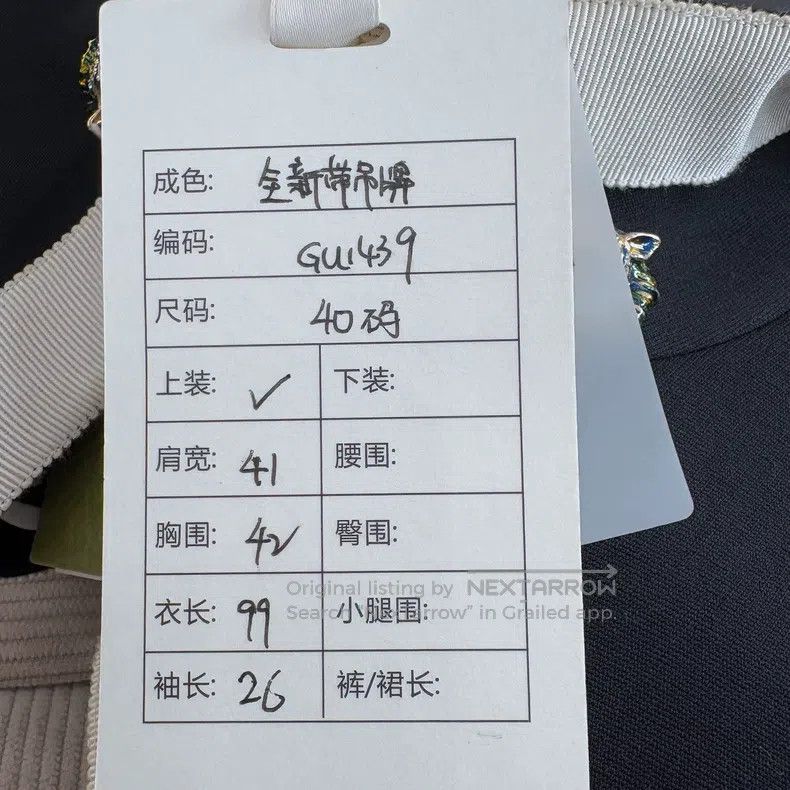 成色: 全新带吊牌
编码: GU1439
尺码: 40码
上装: ✓ 下装:
肩宽: 41 腰围:
胸围: 42 臀围:
Original listing by NEXTARROW
衣长: 99 小腿围:
Search "Nextarrow" in Grailed app.
袖长: 26 裤/裙长: